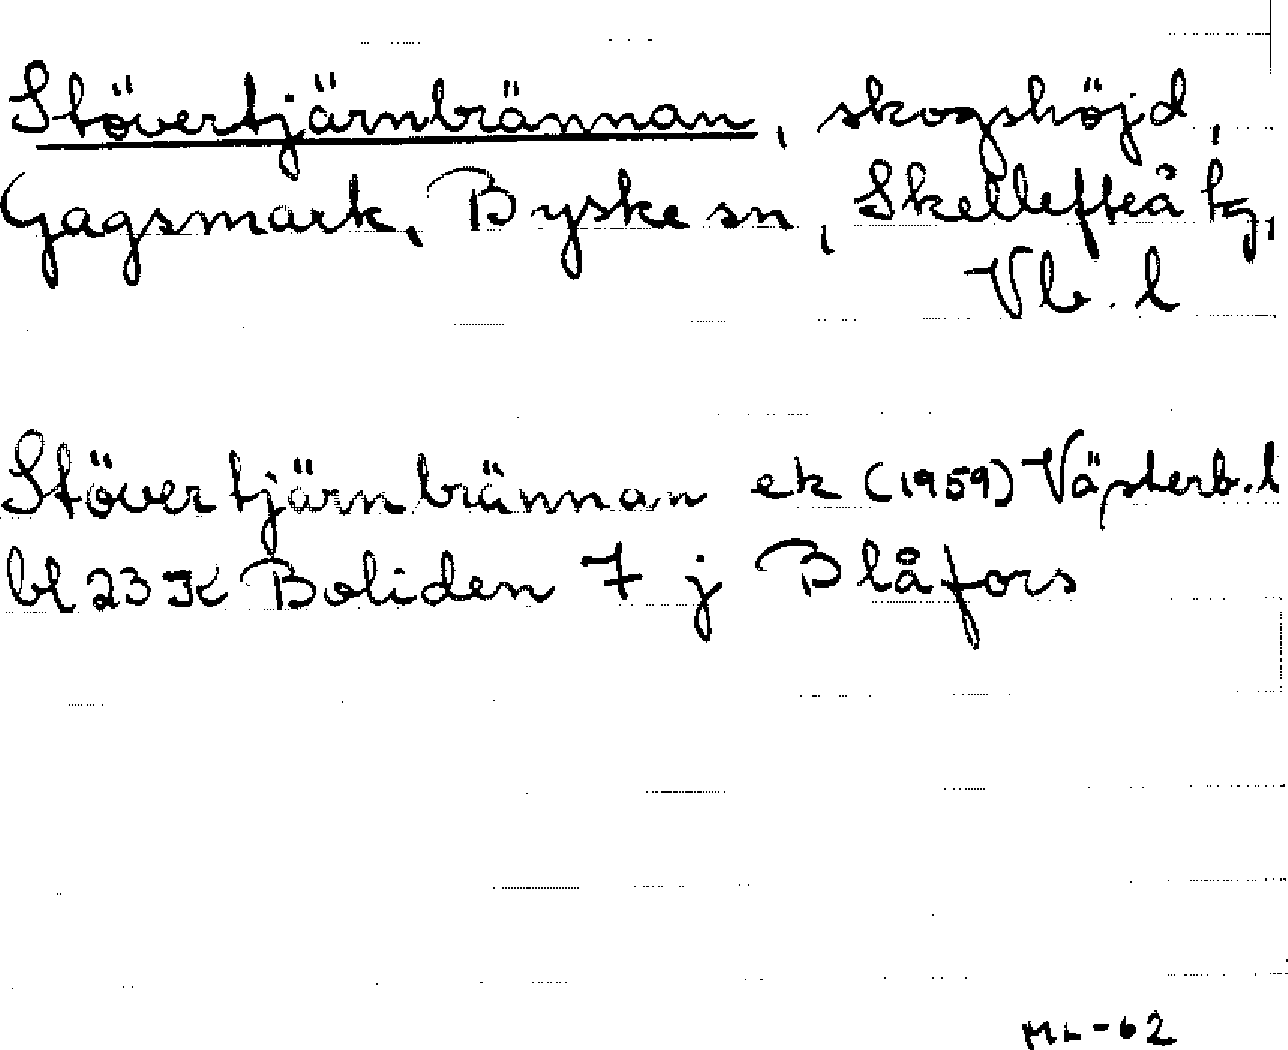 Stövertjärnbrännan, skogshöjd,
Gagsmark, Byske sn, Skellefteå tg,
Vb. l
Stövertjärnbrännan ek (1959) Västerb. l
bl 23 K Boliden 7 j Blåfors
ML-62